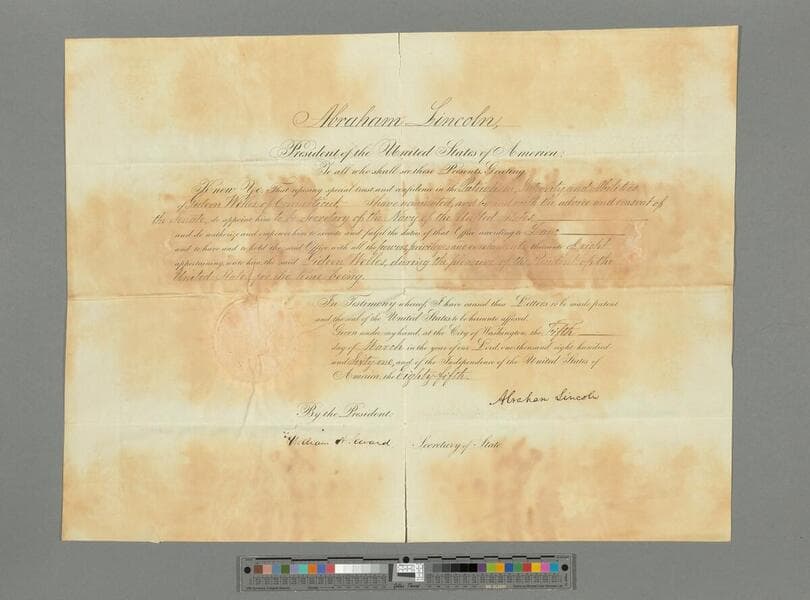 Abraham Lincoln,
President of the United States of America:
To all who shall see these Presents, Greeting.
Know Ye, That reposing special trust and confidence in the Patriotism, Integrity and Abilities
of Gideon Welles of Connecticut, I have nominated, and by and with the advice and consent of
the Senate, do appoint him to be Secretary of the Navy of the United States
and do authorize and empower him to execute and fulfil the duties of that Office according to Law:
and to have and to hold the said Office, with all the powers, privileges and emoluments thereunto of right
appertaining, unto him, the said Gideon Welles, during the pleasure of the President of the
United States for the time being.
In Testimony whereof, I have caused these Letters to be made patent
and the seal of the United States to be hereunto affixed.
Given under my hand, at the City of Washington, the Fifth
day of March in the year of our Lord, one thousand eight hundred
and Sixty one, and of the Independence of the United States of
America, the Eighty-fifth.
Abraham Lincoln
By the President:
William H. Seward Secretary of State